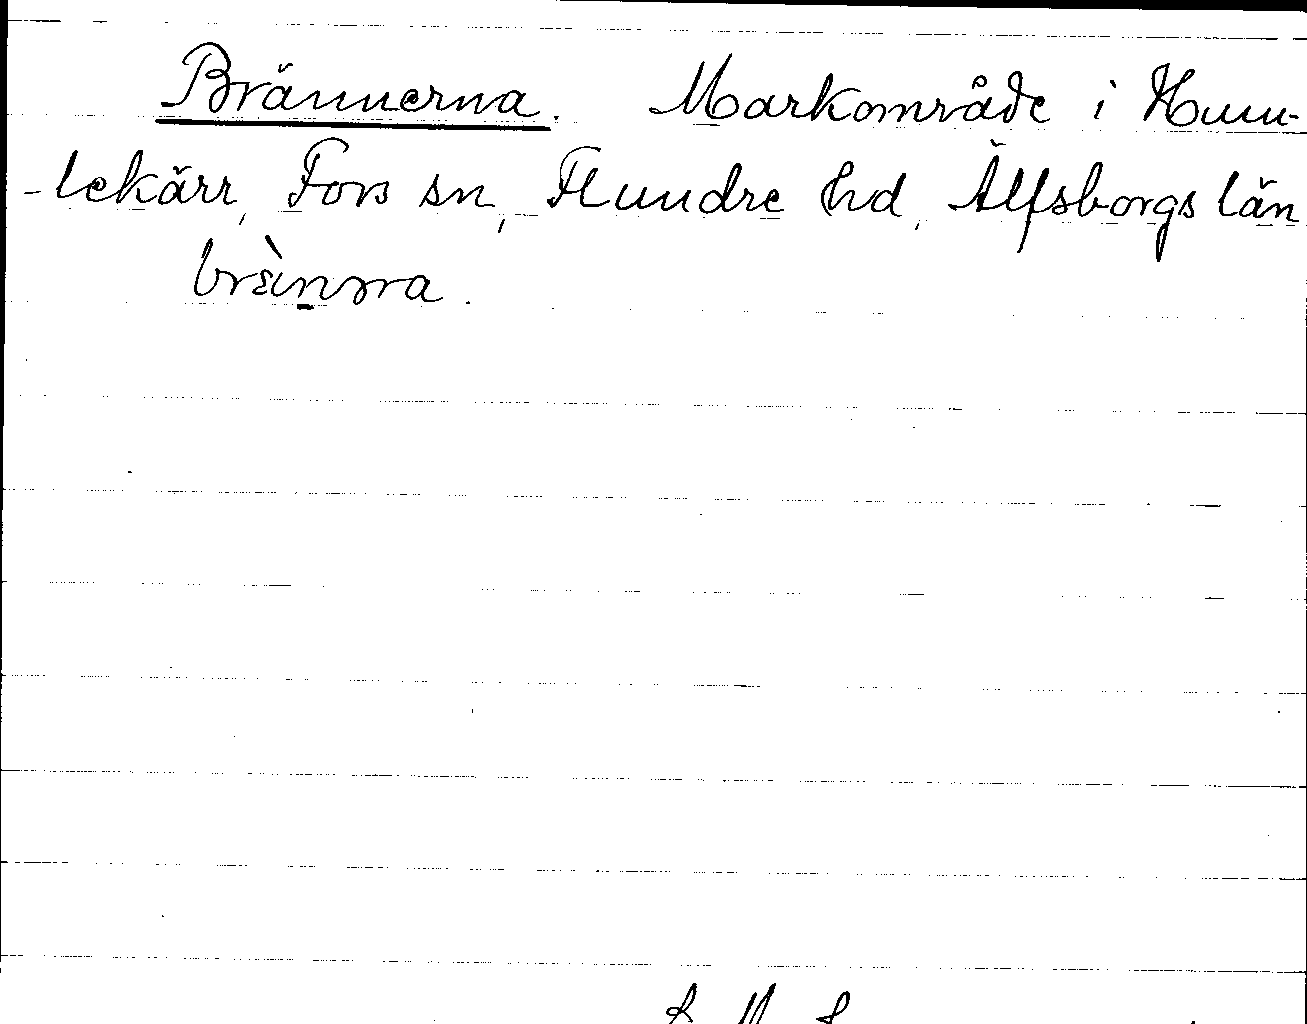 Brännerna. Markområde i Hum-
lekärr, Fors sn, Flundre hd, Älfsborgs län